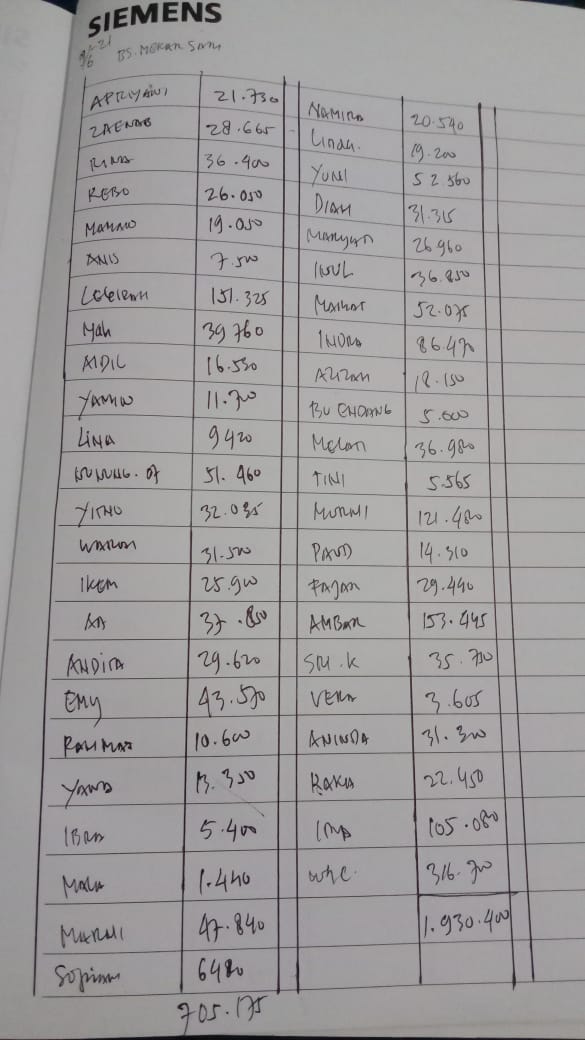 SIEMENS
BS. MEKAR SARI
APRIYANI 21.730
ZAENAB 28.665
RINA 36.400
REBO 26.050
19.050
ANIS 7.500
151.325
Mah 39.760
AIDIL 16.530
11.700
LINA 9420
51.460
YITNO 32.035
31.500
IKEM 25.900
AA 37.850
ANDITA 29.620
EMY 43.570
RAHMAT 10.600
13.350
IBRA 5.400
MALA 1.440
MARMI 47.840
Sopiam 6480
705.175
NAMIRA 20.540
Lindu. 19.200
YUNI 52.560
DIAH 31.315
MARYATI 26.960
INUL 36.850
52.075
INDRA 86.470
AZIZAH 18.150
BU ENDANG 5.600
36.980
TINI 5.565
MURNI 121.480
PAUD 14.310
FAJAR 29.490
AMBAR 153.445
SM.K 35.700
VERA 3.605
ANINDA 31.300
RAKA 22.450
IMA 105.080
316.700
1.930.400